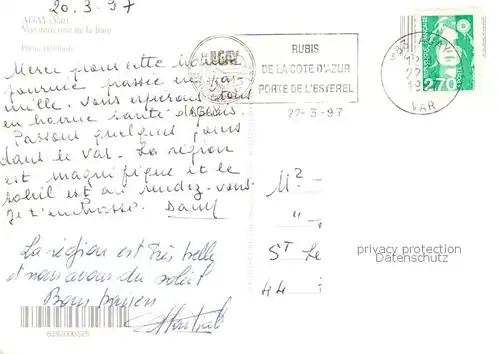 20.3-97
AGAY (Var)
Vue aérienne de la baie
Merci pour cette
journée passée en
mille. Vous espérons tous
en bonne santé
Passons quelques jours
dans le Var. La région
est magnifique et le
soleil est au rendez-vous
Je t'embrasse. Dany
La région est très belle
et nous avons du soleil
Bons baisers
8392000125
AGAY
RUBIS
DE LA COTE D'AZUR
PORTE DE L'ESTEREL
22-3-97
VAR
2,70
M2
ST Le
44
privacy protection
Datenschutz